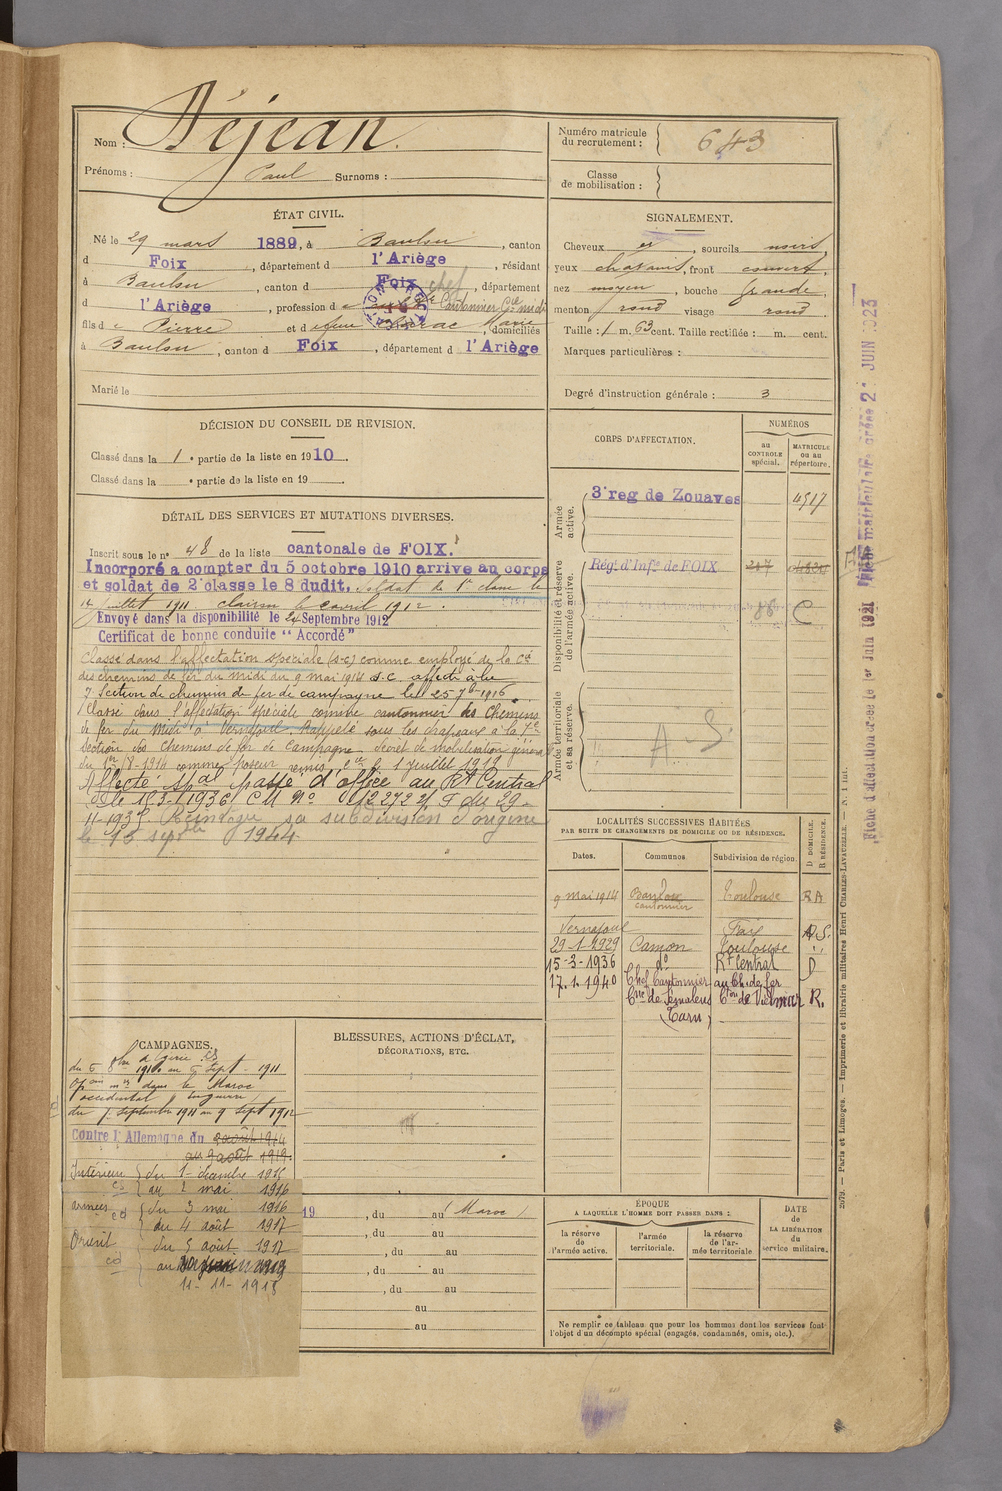 Nom : Déjean.
Prénoms : Paul Surnoms :
Numéro matricule du recrutement : 643
Classe de mobilisation :
ÉTAT CIVIL.
Né le 29 mars 1889, à Baulou, canton
d Foix, département d l'Ariège, résidant
à Baulou, canton d Foix, département
d l'Ariège, profession d chef Cantonnier Cie midi
fils de Pierre et de feue Marie, domiciliés
à Baulou, canton d Foix, département d l'Ariège
Marié le
SIGNALEMENT.
Cheveux et, sourcils noirs,
yeux chatains, front couvert,
nez moyen, bouche grande,
menton rond visage rond.
Taille : 1 m. 63 cent. Taille rectifiée : m. cent.
Marques particulières :
Degré d'instruction générale : 3
DÉCISION DU CONSEIL DE REVISION.
Classé dans la 1e partie de la liste en 1910.
Classé dans la e partie de la liste en 19
DÉTAIL DES SERVICES ET MUTATIONS DIVERSES.
Inscrit sous le n° 48 de la liste cantonale de FOIX.
Incorporé a compter du 5 octobre 1910 arrive au corps
et soldat de 2e classe le 8 dudit. Soldat de 1e classe le
14 juillet 1911. clairon le avril 1912.
Envoyé dans la disponibilité le 24 Septembre 1912
Certificat de bonne conduite "Accordé"
Classé dans l'affectation spéciale (s-c) comme employé de la Cie
des chemins de fer du midi du 9 mai 1914 S.C. affecté à la
7e Section de chemins de fer de campagne le 25 7bre 1916
Classé dans l'affectation spéciale comme cantonnier des Chemins
de fer du Midi à Vernajoul. Rappelé sous les drapeaux à la 7e
Section des Chemins de fer de Campagne décret de mobilisation général
du 1er/8-1914 comme poseur le 1 juillet 1919
Affecté spal passé d'office au Rt Central
de le 15-3-1936 C.M. N° 12272 2/ du 29-
11-1937 Réintègre sa subdivision d'origine
le 15 septbre 1944
CORPS D'AFFECTATION.
NUMÉROS
au CONTROLE spécial.
MATRICULE ou au répertoire.
Armée active.
3e reg de Zouaves 4517
Disponibilité et réserve de l'armée active.
Régt d'Infie de FOIX 217
88 C
Armée territoriale et sa réserve.
A S.
LOCALITÉS SUCCESSIVES HABITÉES
PAR SUITE DE CHANGEMENTS DE DOMICILE OU DE RÉSIDENCE.
Dates. Communes Subdivision de région. D DOMICILE. R RÉSIDENCE.
9 mai 1914 Baulou cantonnier Toulouse RA
Vernajoul Foix A.S.
29-1-1929 Camon Toulouse "
15-3-1936 d° Rt Central D
17.1.1940 Chef Cantonnier au Ch. de fer
Cne de Semalens Cton de Vielmur R.
(Tarn)
CAMPAGNES.
Algérie
du 5 8bre 1910 au 6 Sept 1911
Opons mres dans le Maroc
occidental en guerre
du 7 Septembre 1911 au 9 Sept 1912
Contre l'Allemagne du 2 août 1914
au 9 août 1919.
Intérieur du 1 décembre 1915
au 2 mai 1916
armées du 3 mai 1916
au 4 août 1917
Orient du 5 août 1917
au
11-11-1918
BLESSURES, ACTIONS D'ÉCLAT,
DÉCORATIONS, ETC.
19 , du au (Maroc)
, du au
, du au
, du au
, du au
au
au
ÉPOQUE
A LAQUELLE L'HOMME DOIT PASSER DANS :
la réserve de l'armée active.
l'armée territoriale.
la réserve de l'armée territoriale
DATE de LA LIBÉRATION du service militaire.
Ne remplir ce tableau que pour les hommes dont les services font
l'objet d'un décompte spécial (engagés, condamnés, omis, etc.).
2079. — Paris et Limoges. — Imprimerie et librairie militaires Henri CHARLES-LAVAUZELLE. — N. 1 int.
Fiche d'affectation créée le 1er Juin 1921
Fiche matriculaire créée 21 JUIN 1923